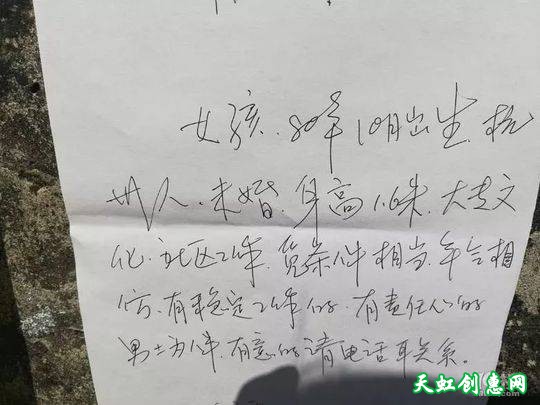 女孩.80年10月出生.杭
州人.未婚.身高1.6米.大专文
化.社区工作.觅条件相当.年令相
仿.有稳定工作的.有责任心的
男士为伴.有意的请电话联系。
天虹创惠网